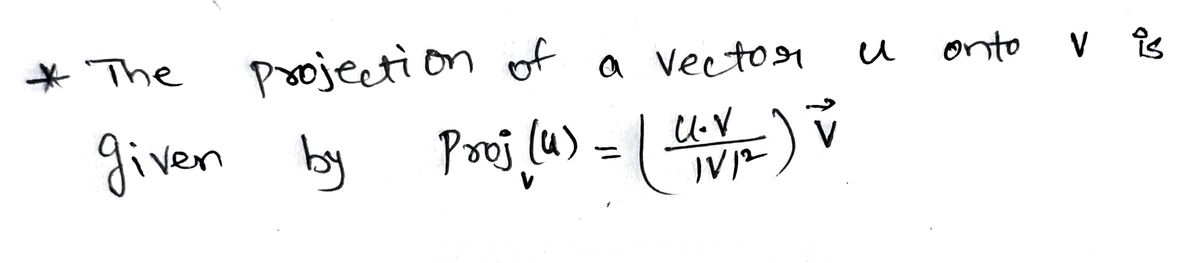 * The projection of a vector u onto v is
given by Proj_v(u) = (u·v / |v|²) v⃗